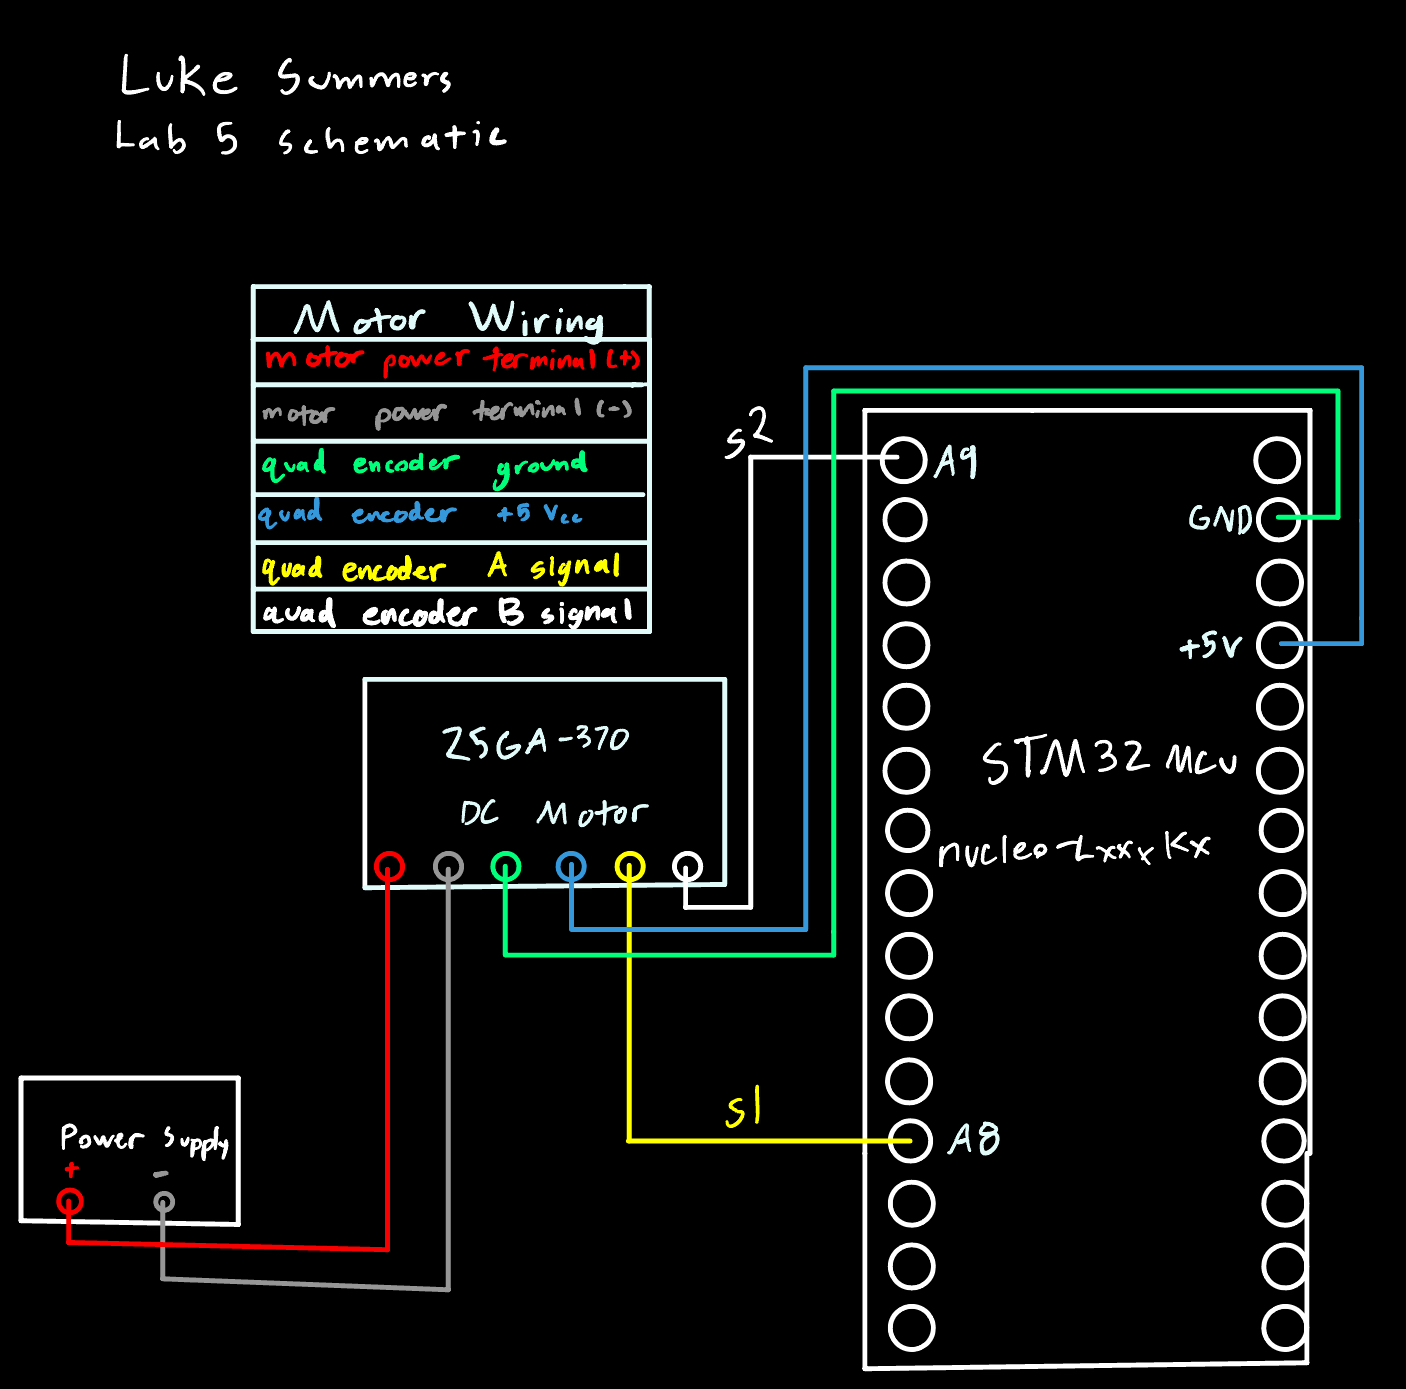 Luke Summers
Lab 5 schematic
Motor Wiring
motor power terminal (+)
motor power terminal (-)
quad encoder ground
quad encoder +5 Vcc
quad encoder A signal
quad encoder B signal
s2
A9
GND
+5V
25GA-370
DC Motor
STM32 MCU
nucleo-LxxxKx
s1
A8
Power Supply
+ -